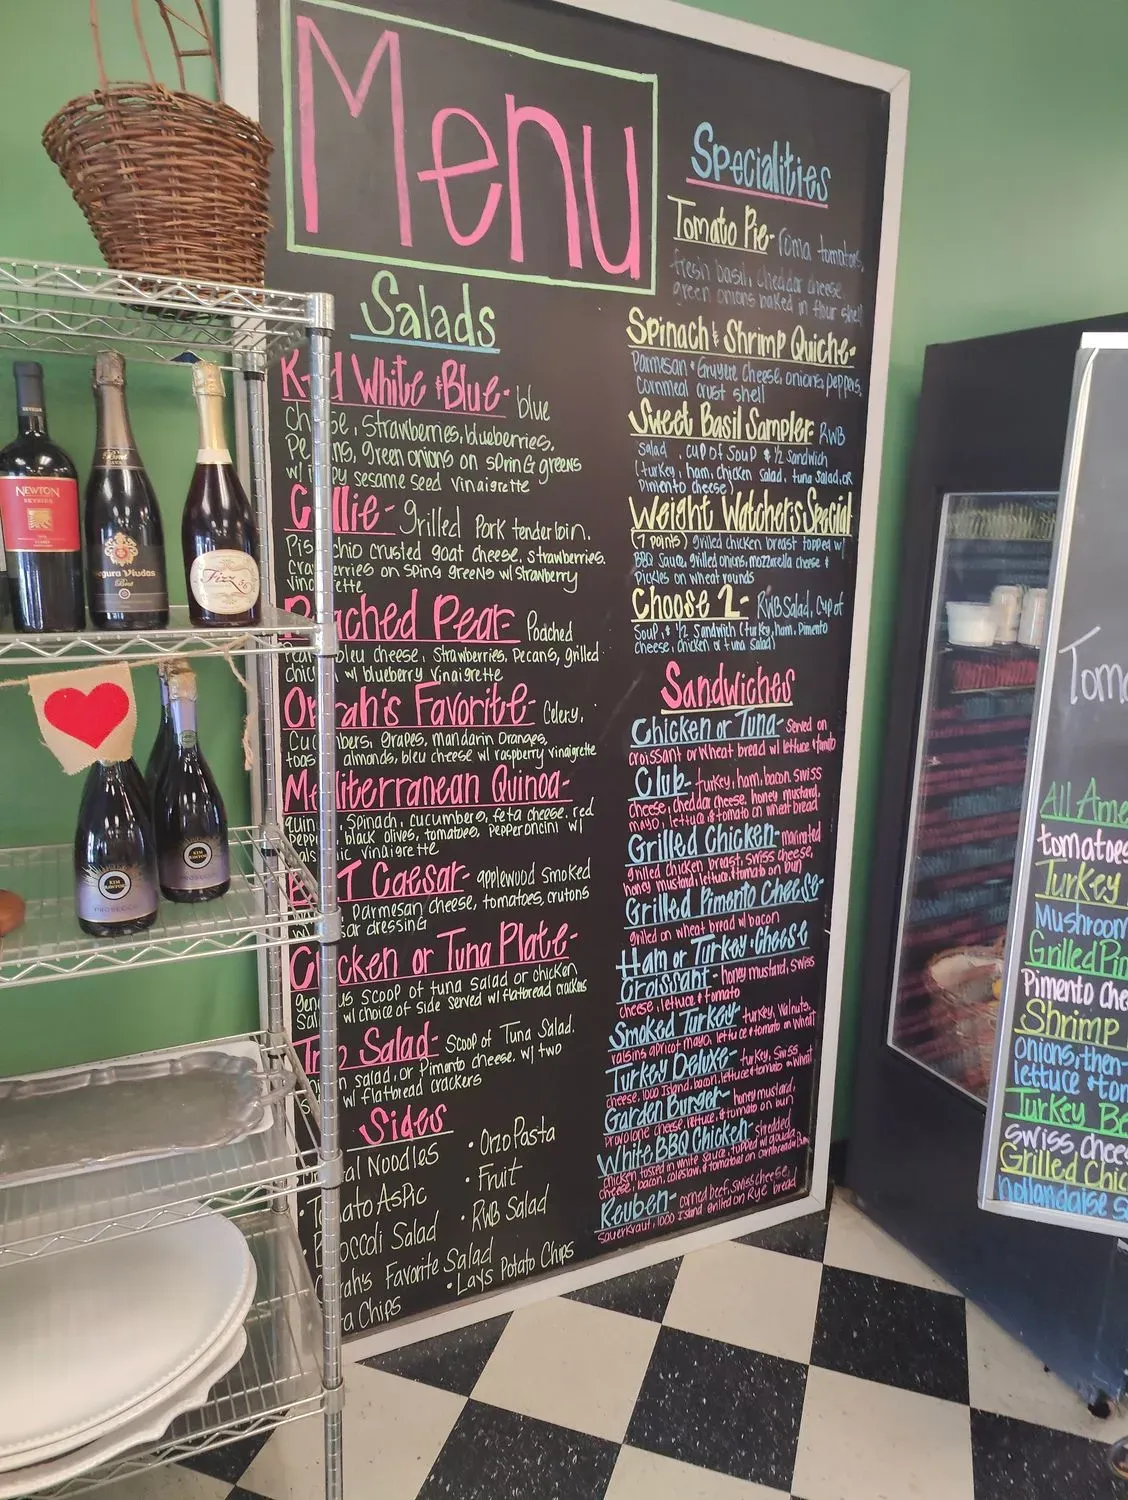 Menu
Salads
White & Blue- blue
strawberries, blueberries,
green onions on spring greens
sesame seed vinaigrette
grilled Pork tenderloin,
crusted goat cheese, strawberries,
on sping greens w/ strawberry
Pear- Poached
bleu cheese, strawberries, pecans, grilled
w/ blueberry vinaigrette
Favorite- Celery,
grapes, mandarin oranges,
almonds, bleu cheese w/ raspberry vinaigrette
Mediterranean Quinoa-
Spinach, cucumbers, feta cheese, red
black olives, tomatoes, Pepperoncini w/
vinaigrette
T Caesar- applewood smoked
Parmesan cheese, tomatoes, crutons
dressing
Chicken or Tuna Plate-
scoop of tuna salad or chicken
w/ choice of side served w/ flatbread crackers
Salad- Scoop of Tuna Salad,
salad, or Pimento cheese, w/ two
w/ flatbread crackers
Sides
Noodles
Aspic
Broccoli Salad
Favorite Salad
Chips
• Orzo Pasta
• Fruit
• RWB Salad
• Lays Potato Chips
Specialities
Tomato Pie- roma tomatoes,
fresh basil, cheddar cheese
green onions baked in flour shell
Spinach & Shrimp Quiche-
Parmesan & Gruyere cheese, onions, peppers,
cornmeal crust shell
Sweet Basil Sampler- RWB
salad, cup of soup & 1/2 sandwich
(turkey, ham, chicken salad, tuna salad, or
Pimento cheese)
Weight Watchers Special
(7 points) grilled chicken breast topped w/
BBQ sauce, grilled onions, mozzarella cheese &
Pickles on wheat rounds
Choose 2- RWB Salad, cup of
soup, & 1/2 sandwich (turkey, ham, Pimento
cheese, chicken or tuna salad)
Sandwiches
Chicken or Tuna- Served on
croissant or wheat bread w/ lettuce & tomato
Club- turkey, ham, bacon, swiss
cheese, cheddar cheese, honey mustard,
mayo, lettuce & tomato on wheat bread
Grilled Chicken- marinated
grilled chicken breast, swiss cheese,
honey mustard, lettuce, tomato on bun
Grilled Pimento Cheese-
grilled on wheat bread w/ bacon
Ham or Turkey & Cheese
Croissant- honey mustard, swiss
cheese, lettuce & tomato
Smoked Turkey- turkey, walnuts,
raisins, apricot mayo, lettuce & tomato on wheat
Turkey Deluxe- turkey, swiss
cheese, 1000 Island, bacon, lettuce & tomato on wheat
Garden Burger- honey mustard,
provolone cheese, lettuce, & tomato on bun
White BBQ Chicken- shredded
chicken tossed in white sauce, topped w/ gouda
cheese, bacon, coleslaw, & tomato on
Reuben- corned beef, swiss cheese,
sauerkraut, 1000 Island grilled on Rye bread
NEWTON
Segura Viudas
Brut
Fizz 56
KIM CRAWFORD
PROSECCO
KIM CRAWFORD
PROSECCO
All Ame
tomatoes
Turkey
Mushroom
Grilled Pim
Pimento che
Shrimp
onions, then
lettuce & tom
Turkey Be
swiss, chees
Grilled Chic
hollandaise s